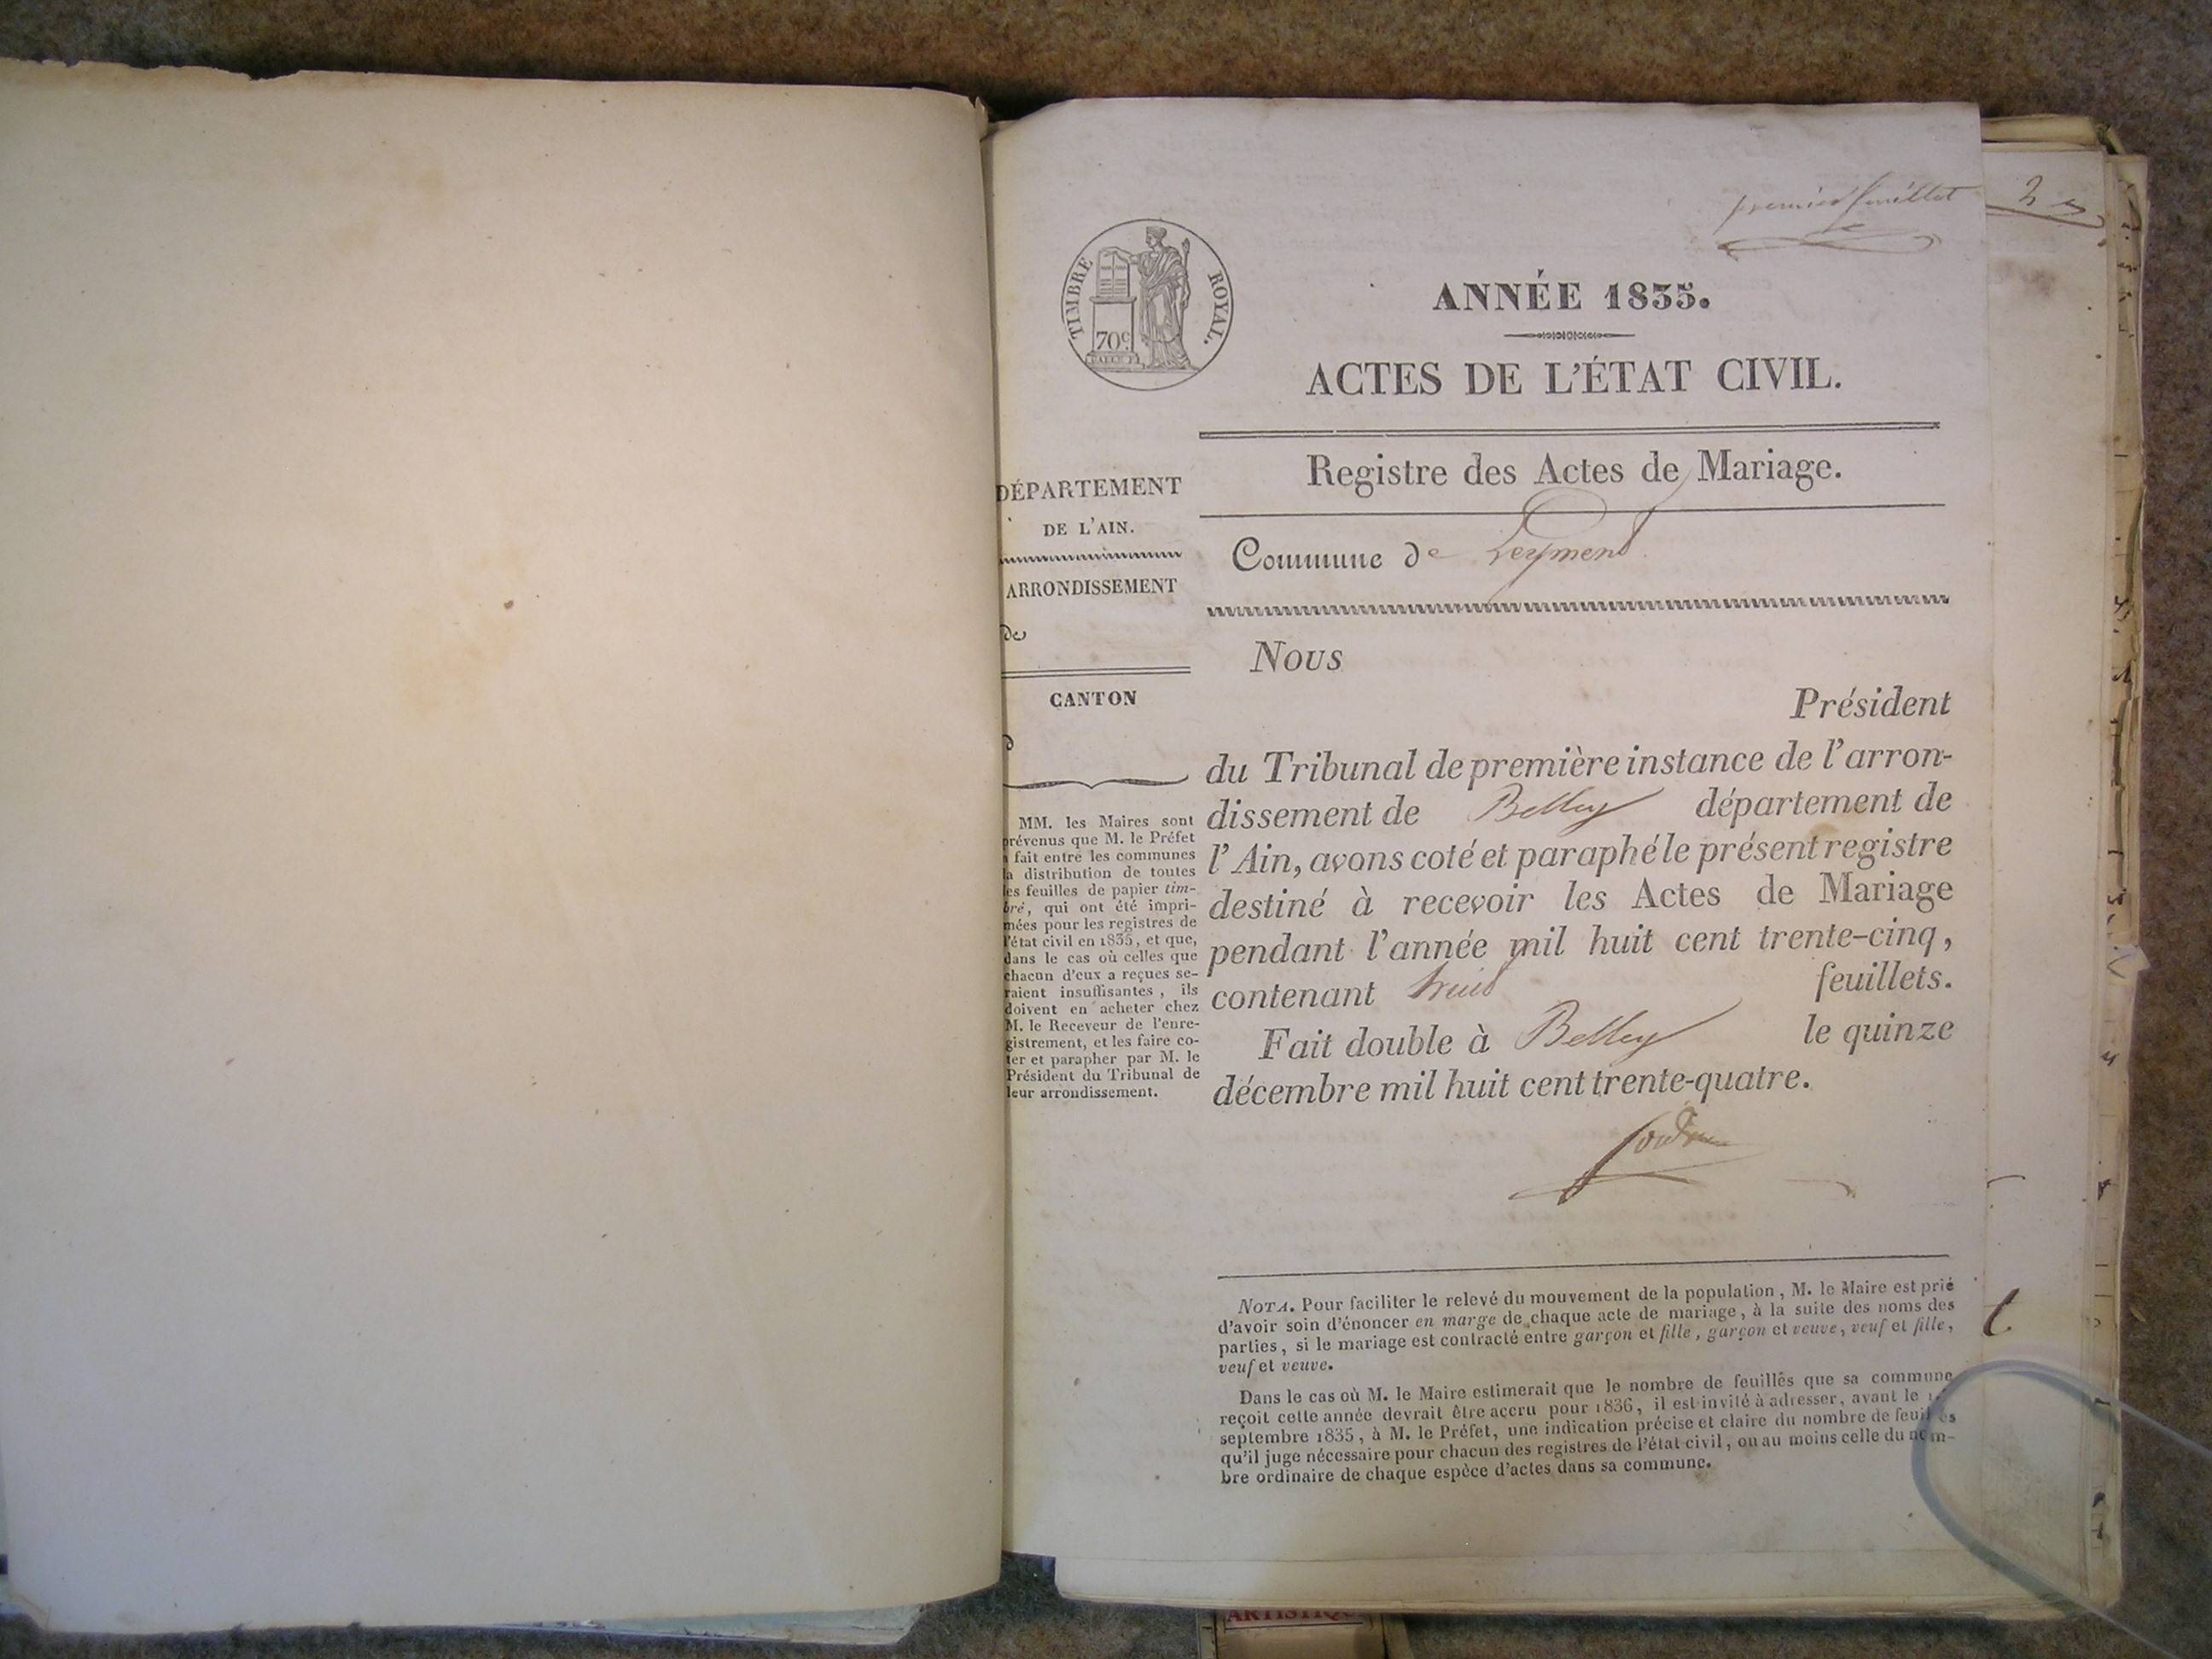 premier feuillet
2 e
TIMBRE ROYAL.
70c
ANNÉE 1835.
ACTES DE L'ÉTAT CIVIL.
Registre des Actes de Mariage.
Commune de Leyment
DÉPARTEMENT
DE L'AIN.
ARRONDISSEMENT
de
CANTON
d
MM. les Maires sont
prévenus que M. le Préfet
a fait entre les communes
la distribution de toutes
les feuilles de papier tim-
bré, qui ont été impri-
mées pour les registres de
l'état civil en 1835, et que,
dans le cas où celles que
chacun d'eux a reçues se-
raient insuffisantes, ils
doivent en acheter chez
M. le Receveur de l'enre-
gistrement, et les faire co-
ter et parapher par M. le
Président du Tribunal de
leur arrondissement.
Nous
Président
du Tribunal de première instance de l'arron-
dissement de Belley département de
l'Ain, avons coté et paraphé le présent registre
destiné à recevoir les Actes de Mariage
pendant l'année mil huit cent trente-cinq,
contenant feuillets.
Fait double à Belley le quinze
décembre mil huit cent trente-quatre.
NOTA. Pour faciliter le relevé du mouvement de la population, M. le Maire est prié
d'avoir soin d'énoncer en marge de chaque acte de mariage, à la suite des noms des
parties, si le mariage est contracté entre garçon et fille, garçon et veuve, veuf et fille,
veuf et veuve.
Dans le cas où M. le Maire estimerait que le nombre de feuilles que sa commune
reçoit cette année devrait être accru pour 1836, il est invité à adresser, avant le 1.er
septembre 1835, à M. le Préfet, une indication précise et claire du nombre de feuilles
qu'il juge nécessaire pour chacun des registres de l'état civil, ou au moins celle du nom-
bre ordinaire de chaque espèce d'actes dans sa commune.
ARTISTIQUE